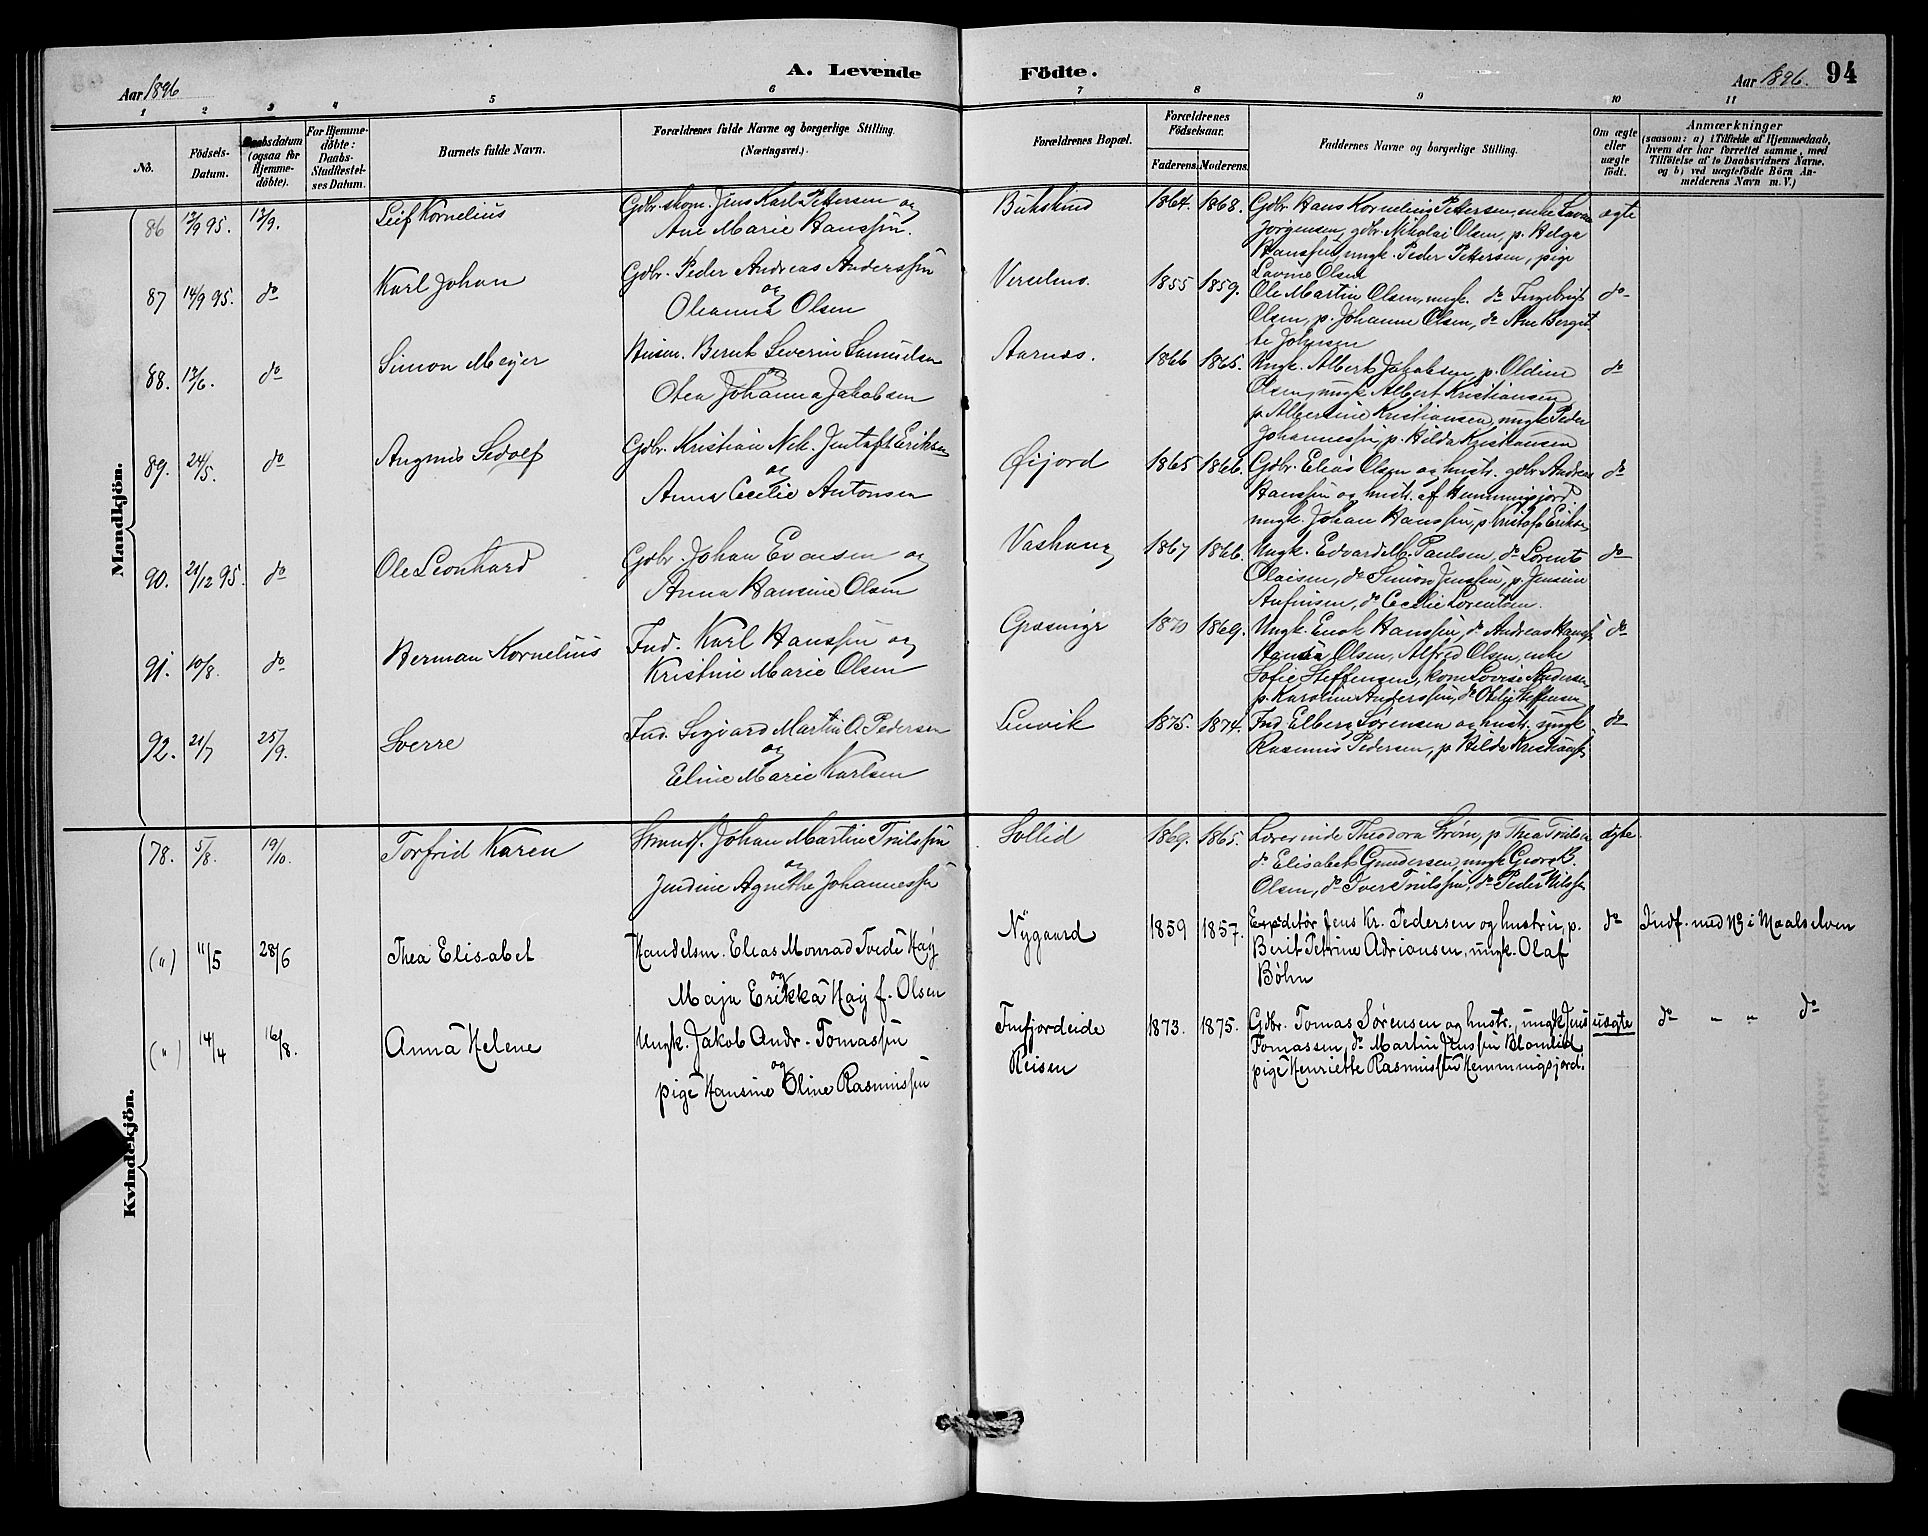 A. Levende Födte.
94
Aar 1896
Aar 1896.
1 2 3 4 5 6 7 8 9 10 11
No.
Födsels-Datum.
Daabsdatum (ogsaa for Hjemme-döbte).
For Hjemme-döbte: Daabs-Stadfæstel-ses Datum.
Barnets fulde Navn.
Forældrenes fulde Navne og borgerlige Stilling. (Næringsvei.)
Forældrenes Bopæl.
Forældrenes Födselsaar.
Faderens. Moderens.
Faddernes Navne og borgerlige Stilling.
Om ægte eller uægte födt.
Anmærkninger
(saasom: a) i Tilfælde af Hjemmedaab, hvem der har forrettet samme, med Tilföielse af to Daabsvidners Navne. og b) ved uægtefödte Börn Anmelderens Navn m. V.)
Mandkjön.
86 12/9 95. 13/9. Leif Kornelius
Gdbr. skom. Jens Karl Pettersen og
Ane Marie Hanssen.
1864. 1868.
Gdbr. Hans Kornelius Pettersen, enke Lavine
Jørgensen, gdbr. Nikolai Olsen, p. Helga
Hanssen, ungk. Peder Pettersen, pige
Lavine Olsen
ægte
87 14/9 95. do Karl Johan
Gdbr. Peder Andreas Anderssen
og
Oleanna Olsen
1855 1859.
Ole Martin Olsen, ungk. do Ingebrigt
Olsen, p. Johanne Olsen, do Ane Bergit
te Johnsen
do
88. 13/6. do Simon Meyer
Husm. Bernt Severin Samuelsen
og
Otea Johanna Jakobsen
Aarnæs.
1866 1865.
Ungk. Albert Jakobsen, p. Oldine
Olsen, ungk. Albert Kristiansen,
p. Albertine Kristiansen, ungk. Peder
Johannessen, p. Hilda Kristiansen
do
89. 24/5. do Sedolf
Gdbr. Kristian Nik. Eriksen
og
Anna Cecilie Antonsen
Øijord
1865 1866.
Gdbr. Elias Olsen og hustr. gdbr. Andreas
Hanssen og hustr. af Hemmingsjord.
ungk. Johan Hanssen, p. Eriksen
do
90. 21/12 95. do Ole Leonhard
Gdbr. Johan Evensen og
Anna Hansine Olsen
Vashaug
1867 1866.
Ungk. Edvard M. Paulsen, do Lorents
Olaisen, do Simon Jenssen, p. Jensine
Anfinsen, do Cecilie Lorentsen.
do
91. 10/8. do Herman Kornelius
Ind. Karl Hanssen og
Kristine Marie Olsen
1870 1869.
Ungk. Enok Hanssen, do Andreas Hanss.
Olsen, Alfred Olsen, enke
Sofie Steffensen, kone Lovise Andersen,
p. Karoline Anderssen, do Otelie Steffensen
do
92. 21/7 25/9. Sverre
Ind. Sigvard Martin O. Pedersen
og
Eline Marie Karlsen
Lenvik
1875. 1874.
Ind. Elberg Sørensen og hustr. ungk.
Rasmus Pedersen, p. Hilda Kristianss.
do
Kvindekjön.
78. 5/8. 19/10. Torfrid Karen
Strandf. Johan Martin
og
Jensine Agnethe Johannessen
Sollid
1869. 1865.
Lærerinde Theodora Strøm, p. Thea
do Elisabet Gundersen, ungk. Georg B.
Olsen, do Iver do Peder Nilssen
ægte
(") 11/5 28/6 Thea Elisabet
Handelsm. Elias Monrad Tvede Haÿ
og
Maja Erikka Haÿ f. Olsen
Nÿgaard
1859 1857.
Expeditør Jens Kr. Pedersen og hustru, p.
Berit Petrine Adriansen, ungk. Olaf
Bøhn
do
Indf. med No i Maalselven
(") 14/4 16/8. Anna Helene
Ungk. Jakob Andr. Tomassen
og
pige Hansine Oline Rasmussen
Finfjordeide
Reisen
1873. 1875.
Gdbr. Tomas Sørensen og hustr., ungk. Jens
Tomassen, do Martin Jenssen Blomlid
pige Henriette Rasmussen Hemmingsjord.
uægte
do " " do